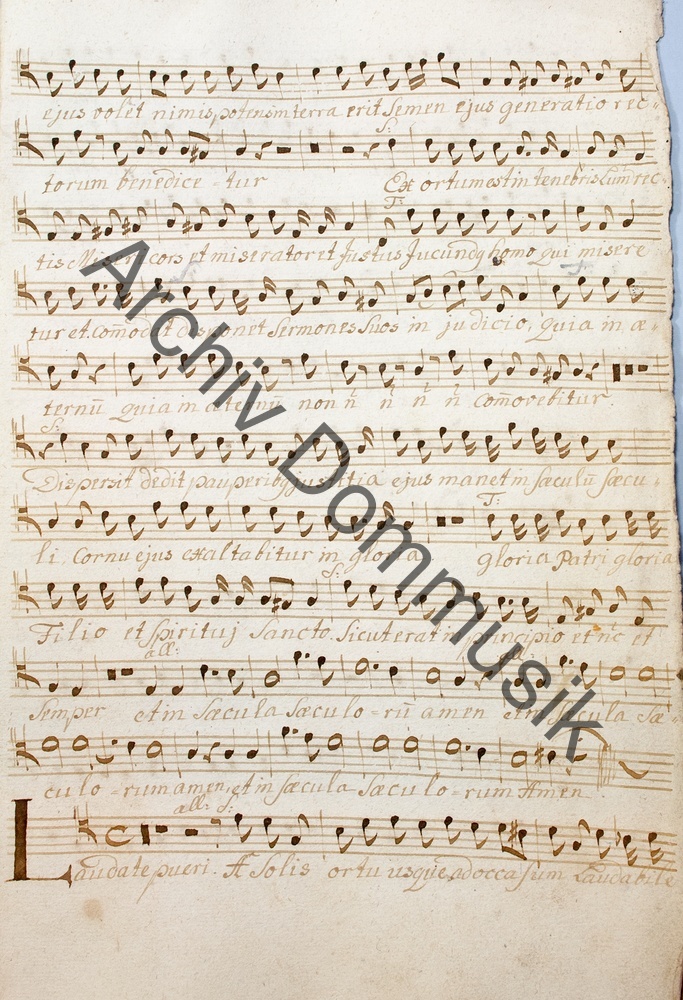 ejus volet nimis, potens in terra erit Semen ejus generatio rec-
S:
torum benedice-tur Ex ortum est in tenebris Lum rec-
T:
tis Misericors et miserator et Justus Jucundq homo qui misere-
tur et. Com̃odat disponet Sermones Suos in judicio, quia in æ-
ternũ quia in æternũ non n̄ n̄ n̄ n̄ Com̃ovebitur.
S:
Dispersit dedit pauperibq justitia ejus manet in sæculũ sæcu-
T:
li, Cornu ejus exaltabitur in gloria gloria Patri gloria
S:
Filio et Spirituj Sancto. Sicut erat in principio et nc̄ et
all:
Semper et in Sæcula Sæculo-rũ amen et in Sæcula Sæ-
culo-rum amen, et in sæcula Sæculo-rum Amen.
all: S:
Laudate pueri. A Solis ortu usque ad occasum Laudabile
Archiv Dommusik